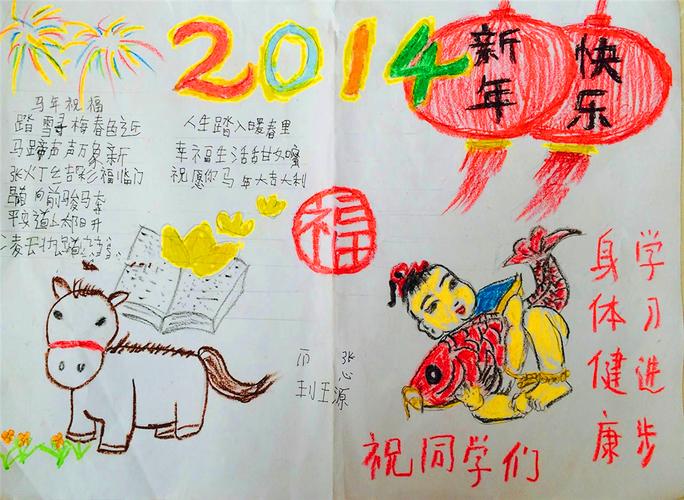 2014
新年
快乐
马年祝福
踏雪寻梅春色近
马蹄声声万象新
张灯结彩福临门
向前骏马奔
平安道上太阳升
凌云壮踏
人生踏入暖春里
幸福生活甜如蜜
祝愿你马年大吉大利
福
张心源
祝同学们
学习进步
身体健康